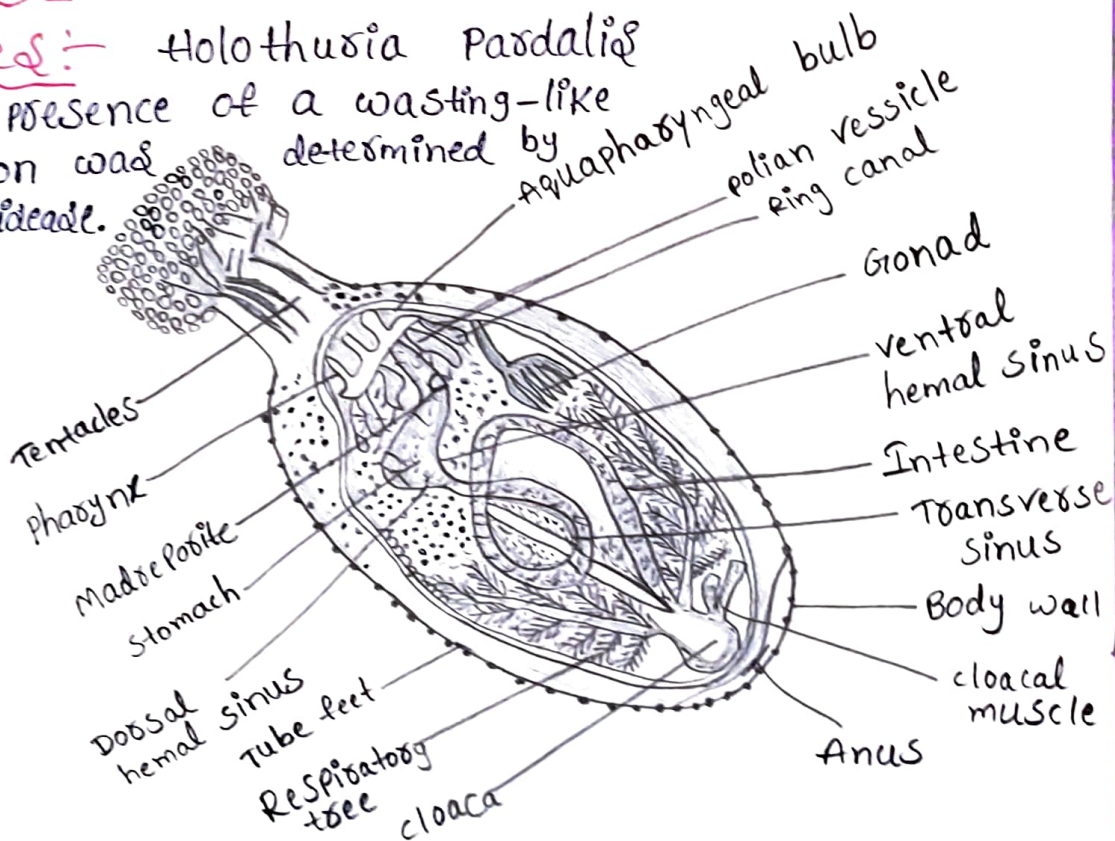 es:- Holothuria Pardalis
presence of a wasting-like
on was determined by
ideade.
Aquapharyngeal bulb
polian vessicle
Ring canal
Gonad
ventral
hemal sinus
Intestine
Transverse
sinus
Body wall
cloacal
muscle
Anus
Tentacles
Pharynx
Madreporite
Stomach
Dorsal
hemal sinus
Tube feet
Respiratory
tree
cloaca